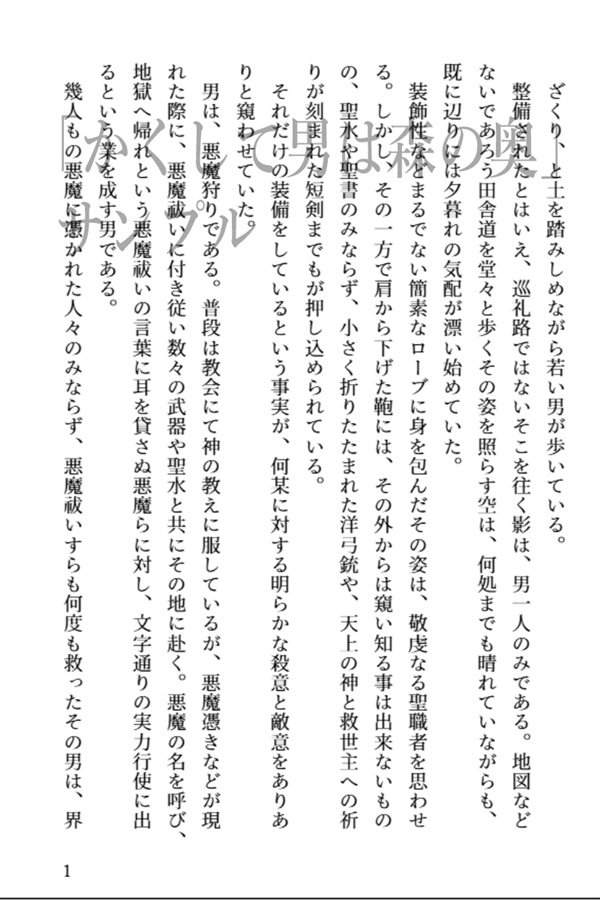 ざくり、と土を踏みしめながら若い男が歩いている。
整備されたとはいえ、巡礼路ではないそこを往く影は、男一人のみである。地図など
ないであろう田舎道を堂々と歩くその姿を照らす空は、何処までも晴れていながらも、
既に辺りには夕暮れの気配が漂い始めていた。
装飾性などまるでない簡素なローブに身を包んだその姿は、敬虔なる聖職者を思わせ
る。しかし、その一方で肩から下げた鞄には、その外からは窺い知る事は出来ないもの
の、聖水や聖書のみならず、小さく折りたたまれた洋弓銃や、天上の神と救世主への祈
りが刻まれた短剣までもが押し込められている。
それだけの装備をしているという事実が、何某に対する明らかな殺意と敵意をありあ
りと窺わせていた。
男は、悪魔狩りである。普段は教会にて神の教えに服しているが、悪魔憑きなどが現
れた際に、悪魔祓いに付き従い数々の武器や聖水と共にその地に赴く。悪魔の名を呼び、
地獄へ帰れという悪魔祓いの言葉に耳を貸さぬ悪魔らに対し、文字通りの実力行使に出
るという業を成す男である。
幾人もの悪魔に憑かれた人々のみならず、悪魔祓いすらも何度も救ったその男は、界
「かくして男は森の奥」
サンプル
1